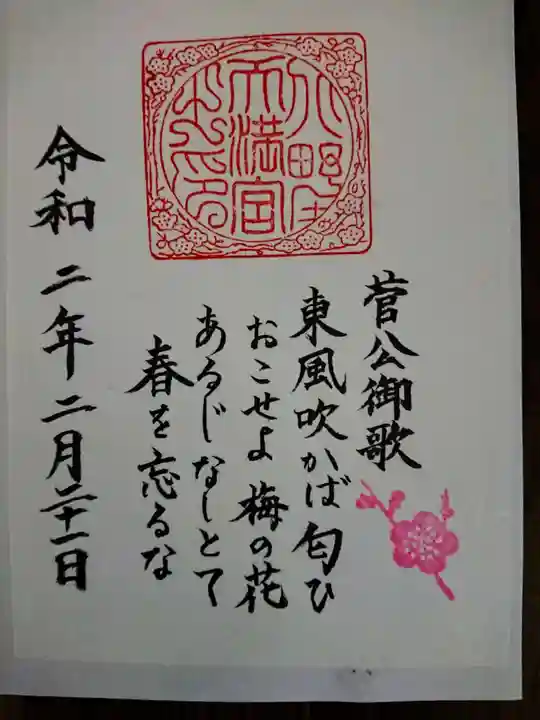 菅公御歌
東風吹かば匂ひ
おこせよ 梅の花
あるじなしとて
春を忘るな
天満宮
令和 二年 二月 二十一日